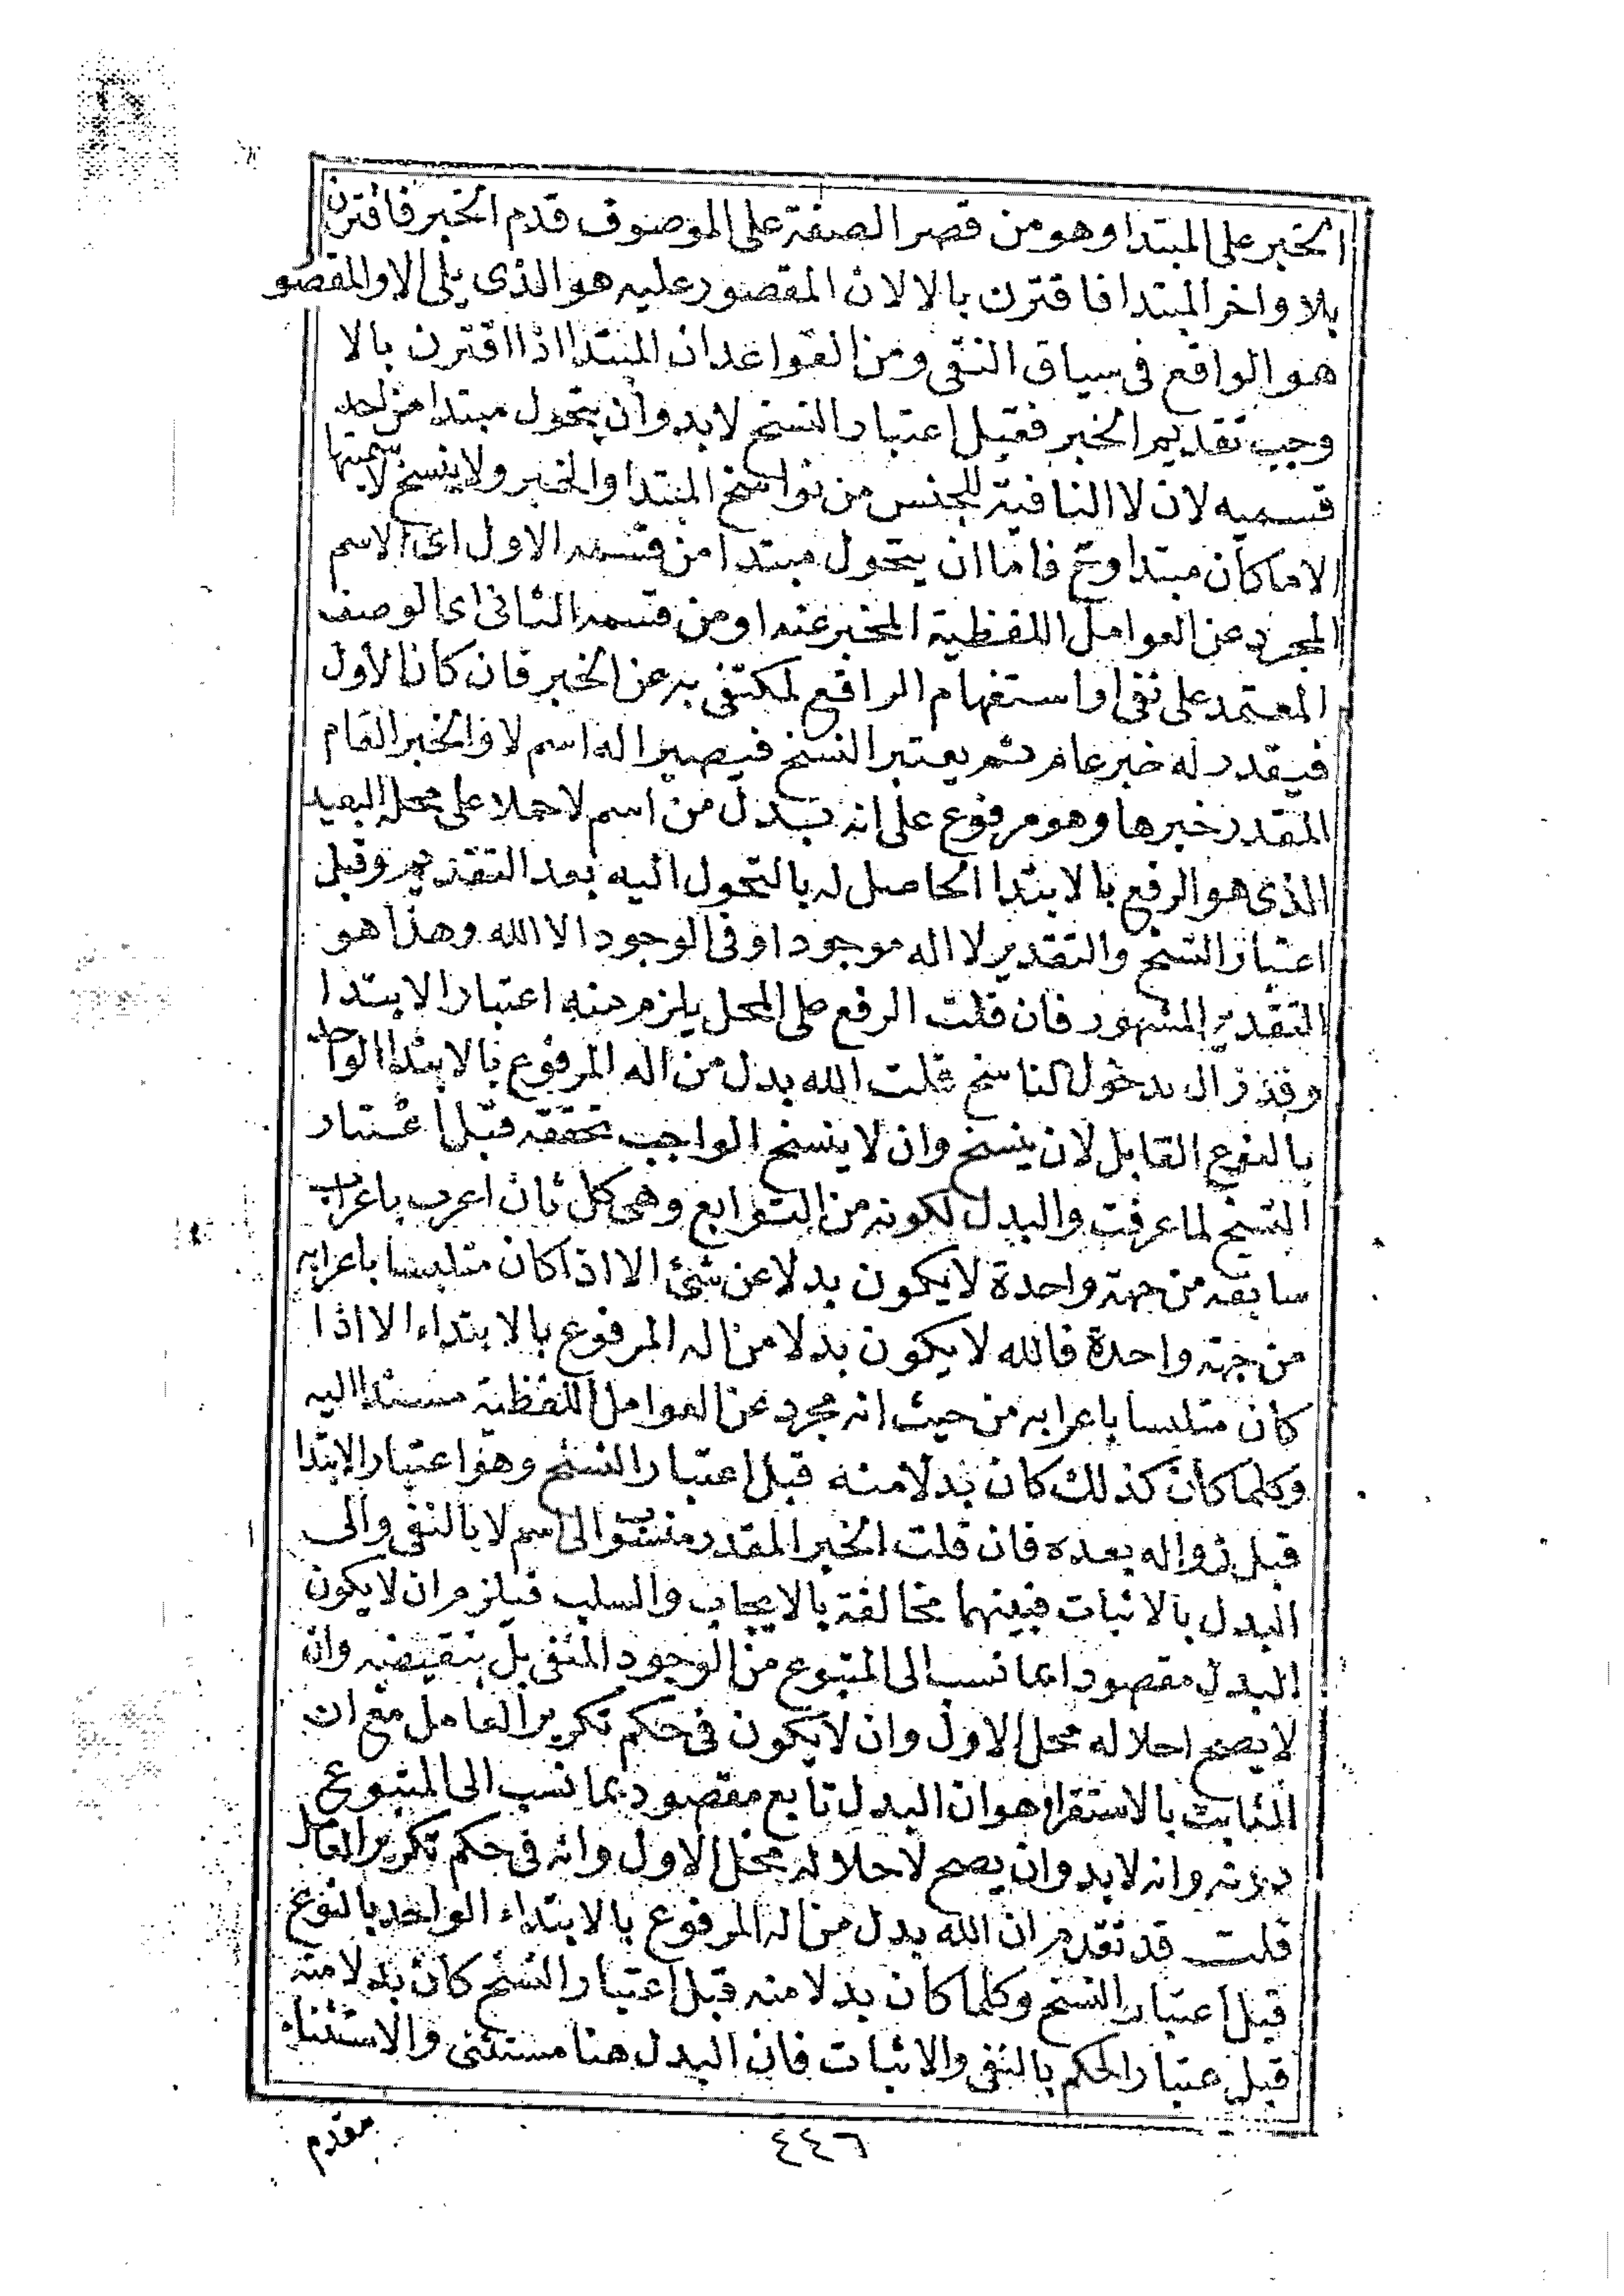 الخبر على المبتدا وهو من قصر الصفة على الموصوف قدم الخبر فاقترن
بلا واخر المبتدا فاقترن بالا لان المقصور عليه هو الذى يلى الا والمقصو
هو الواقع فى سياق النفى ومن القواعد ان المبتدا اذا اقترن بالا
وجب تقديم الخبر فقبل اعتبار النسخ لا بد وأن يتحول مبتدا من احد
قسميه لان لا النافية للجنس من نواسخ المبتدا والخبر ولا ينسخ لا
الا ما كان مبتدا وح فاما ان يتحول مبتدا من قسمه الاول اى الاسم
المجرد عن العوامل اللفظية المخبر عنه او من قسمه الثانى اى الوصف
المعتمد على نفى او استفهام الرافع لمكتفى به عن الخبر فان كان الأول
فيقدر له خبر عام ثم يعتبر النسخ فيصير اله اسم لا والخبر العام
المقدر خبرها وهو مرفوع على انه بدل من اسم لا حملا على محله البعيد
الذى هو الرفع بالابتدا الحاصل له بالتحول اليه بعد التقديم وقبل
اعتبار النسخ والتقدير لا اله موجود او فى الوجود الا الله وهذا هو
التقدير المشهور فان قلت الرفع على المحل يلزم منه اعتبار الابتدا
وقد زال بدخول الناسخ قلت الله بدل من اله المرفوع بالابتدا الواحد
بالنوع القابل لان ينسخ وان لا ينسخ الواجب تحققه قبل اعتبار
النسخ لما عرفت والبدل لكونه من التوابع وهى كل ثان اعرب باعراب
سابقه من جهة واحدة لا يكون بدلا عن شئ الا اذا كان متلبسا باعرابه
من جهة واحدة فالله لا يكون بدلا من اله المرفوع بالابتداء الا اذا
كان متلبسا باعرابه من حيث انه مجرد عن العوامل اللفظية مسندا اليه
وكلما كان كذلك كان بدلا منه قبل اعتبار النسخ وهو اعتبار الابتدا
قبل زواله بعده فان قلت الخبر المقدر منسوب الى اسم لا بالنفى والى
البدل بالاثبات فبينهما مخالفة بالايجاب والسلب فيلزم ان لا يكون
البدل مقصودا بما نسب الى المتبوع من الوجود المنفى بل بنقيضه وان
لا يصح احلاله محل الاول وان لا يكون فى حكم تكرير العامل مع ان
الثابت بالاستقراء هو ان البدل تابع مقصود بما نسب الى المتبوع
دونه وانه لا بد وان يصح لاحلاله محل الاول وانه فى حكم تكرير العامل
قلت قد تقدم ان الله بدل من اله المرفوع بالابتداء الواحد بالنوع
قبل اعتبار النسخ وكلما كان بدلا منه قبل اعتبار النسخ كان بدلا منه
قبل عتبار الحكم بالنفى والاثبات فان البدل هنا مستثنى والاستثناء
مقدم
٤٤٦